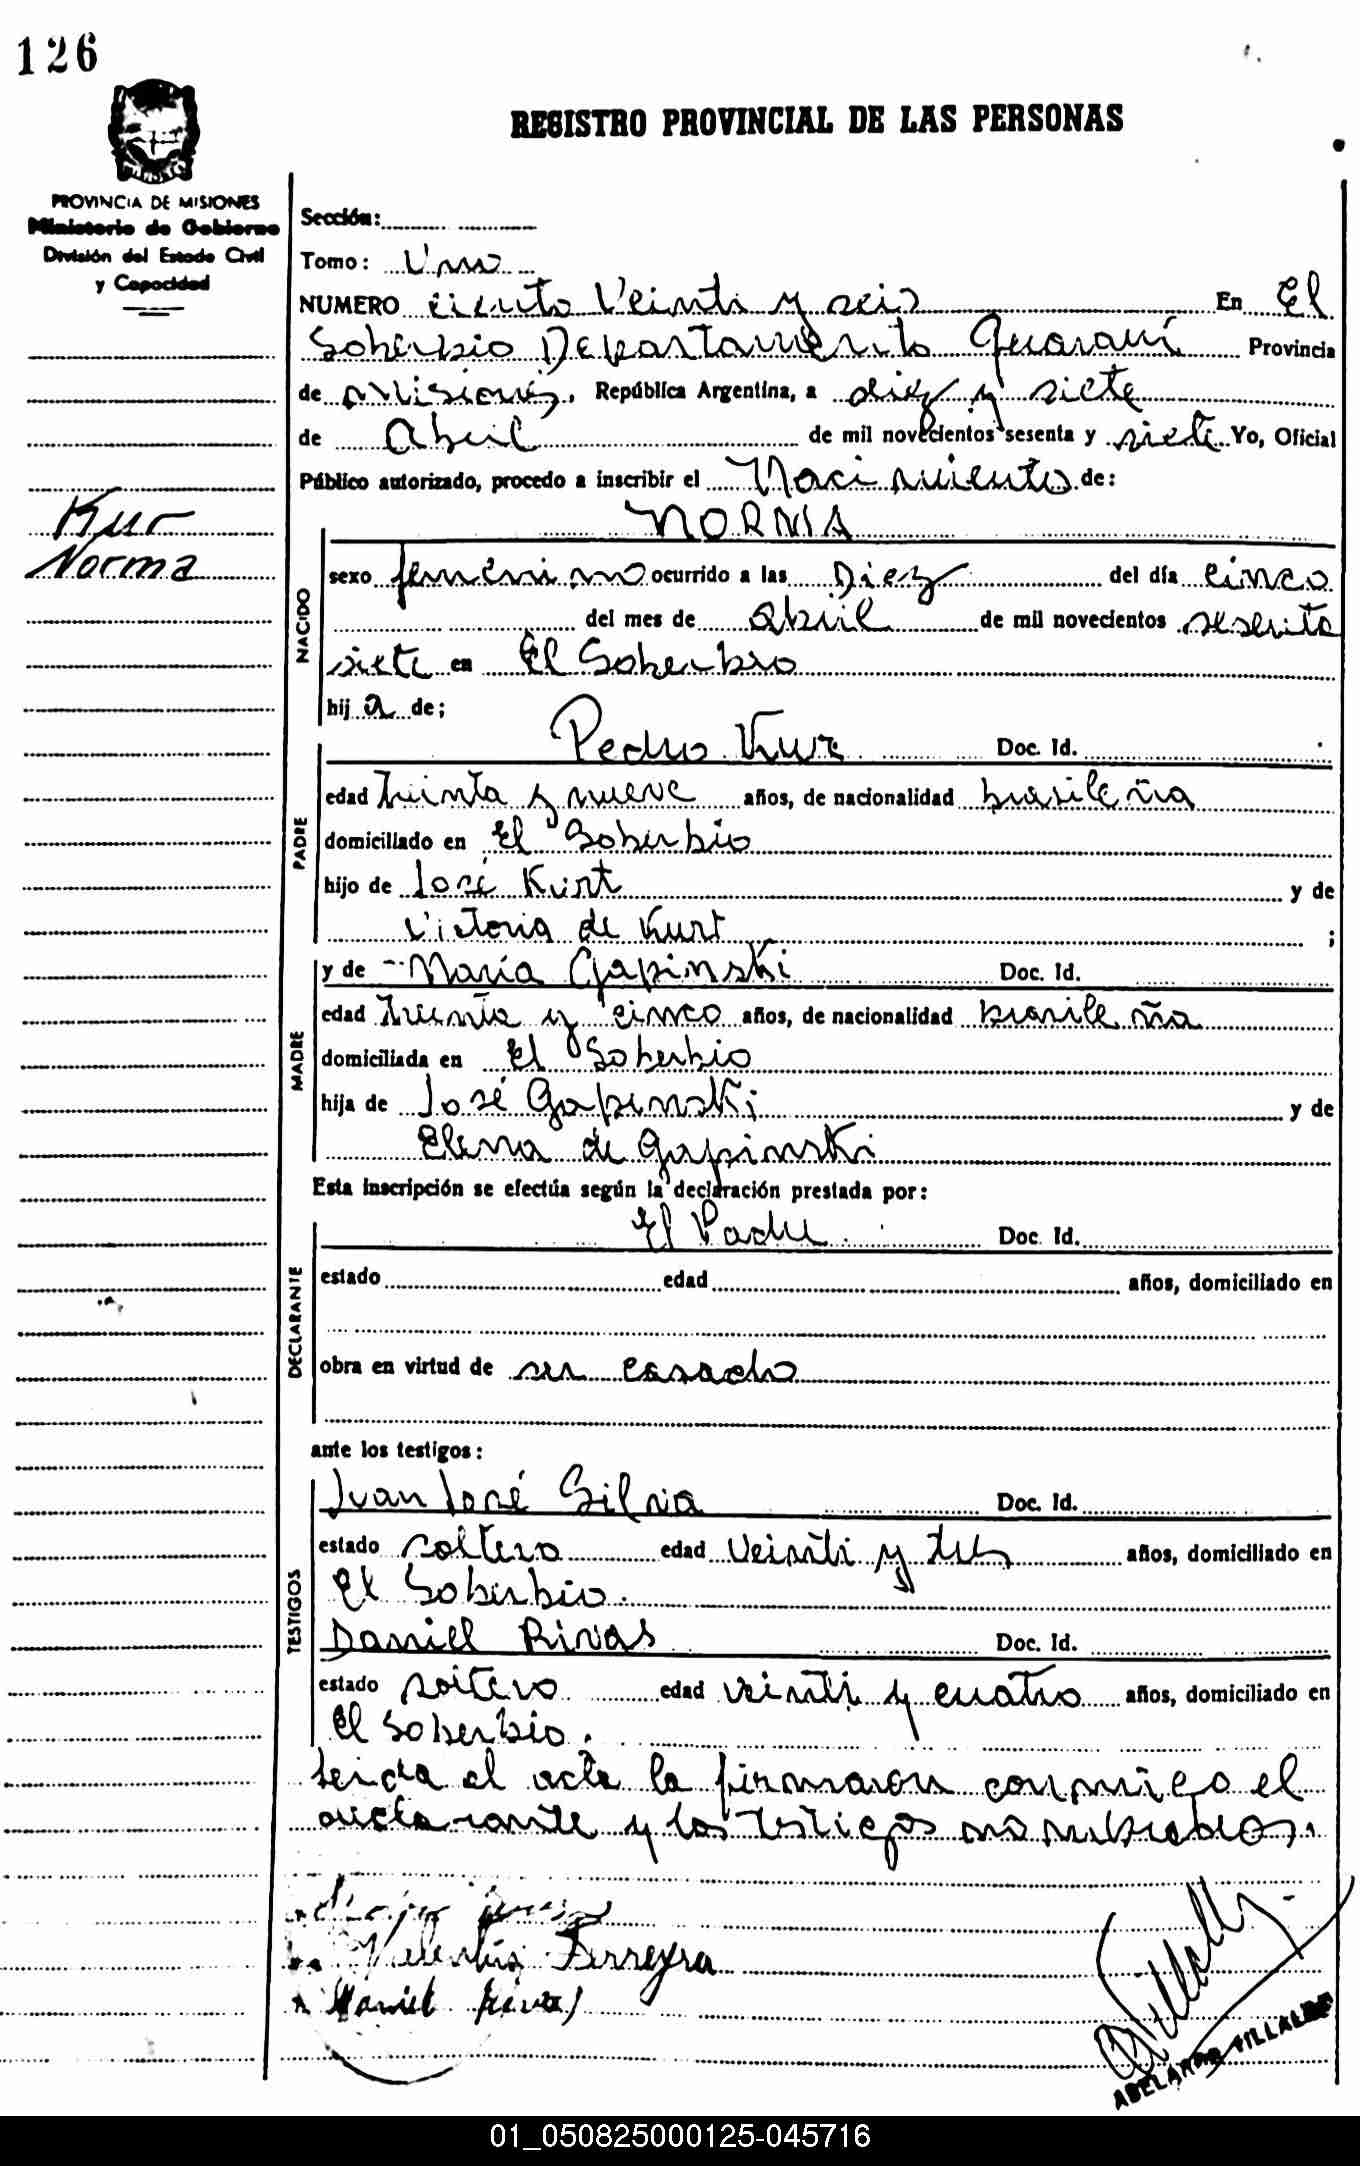 126
REGISTRO PROVINCIAL DE LAS PERSONAS
PROVINCIA DE MISIONES
Ministerio de Gobierno
División del Estado Civil
y Capacidad
Sección:
Tomo: Uno
NUMERO ciento Veinti y seis En El
Soberbio Departamento Guaraní Provincia
de Misiones, República Argentina, a diez y siete
de Abril de mil novecientos sesenta y siete Yo, Oficial
Público autorizado, procedo a inscribir el Nacimiento de:
Kur
Norma
NORMA
NACIDO
sexo femenino ocurrido a las Diez del día cinco
del mes de Abril de mil novecientos sesenta
siete en El Soberbio
hij a de;
PADRE
Pedro Kur Doc. Id.
edad treinta y nueve años, de nacionalidad brasileña
domiciliado en El Soberbio
hijo de José Kurt y de
Victoria de Kurt ;
MADRE
y de María Gapinski Doc. Id.
edad treinta y cinco años, de nacionalidad brasileña
domiciliada en El Soberbio
hija de José Gapenski y de
Elena de Gapinski
Esta inscripción se efectúa según la declaración prestada por:
DECLARANTE
El Padre Doc. Id.
estado edad años, domiciliado en
obra en virtud de ser casado
ante los testigos:
TESTIGOS
Juan José Silva Doc. Id.
estado soltero edad Veinti y tres años, domiciliado en
El Soberbio.
Daniel Rivas Doc. Id.
estado soltero edad veinti y cuatro años, domiciliado en
El Soberbio.
Leida el acta la firmaron conmigo el
declarante y los testigos nombrados.
Ferreyra
Daniel
ABELARDO VILLALBA
01_050825000125-045716